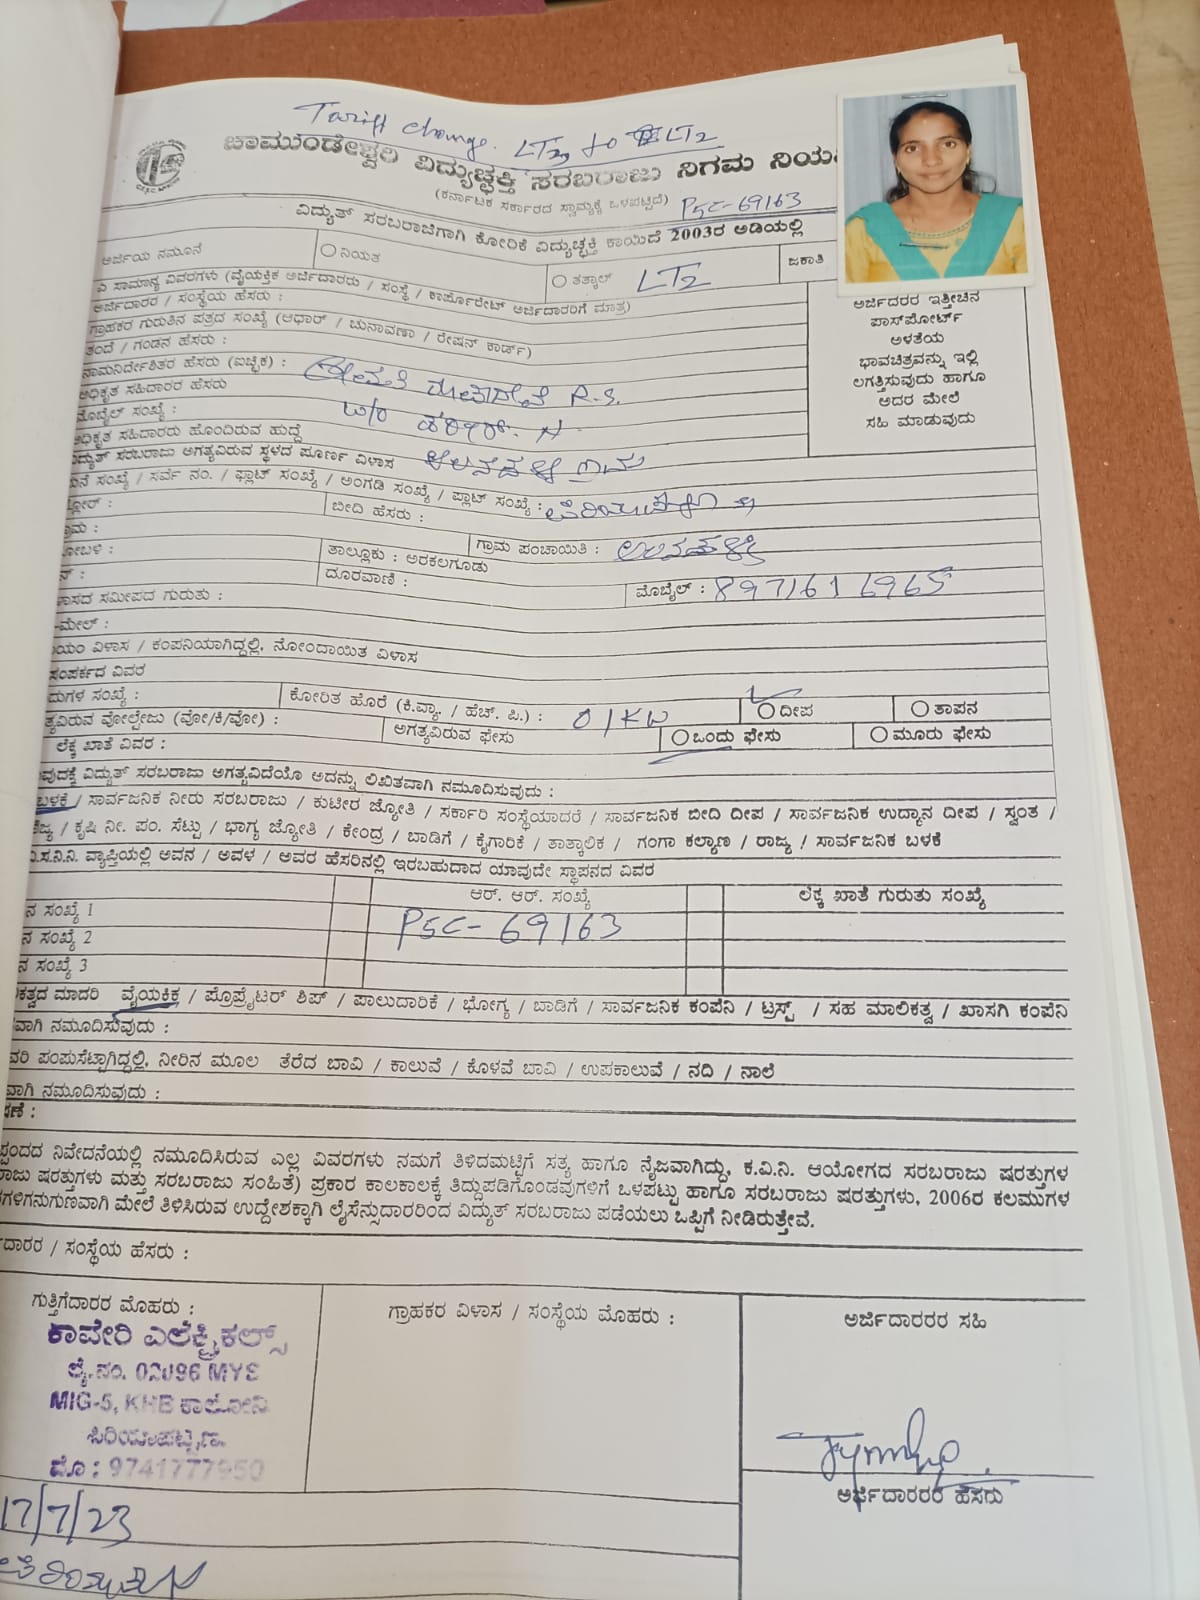 Tariff change. LT2, to LT2
ಚಾಮುಂಡೇಶ್ವರಿ ವಿದ್ಯುಚ್ಛಕ್ತಿ ಸರಬರಾಜು ನಿಗಮ ನಿಯ
(ಕರ್ನಾಟಕ ಸರ್ಕಾರದ ಸ್ವಾಮ್ಯಕ್ಕೆ ಒಳಪಟ್ಟಿದೆ) PSC-69163
ವಿದ್ಯುತ್ ಸರಬರಾಜಿಗಾಗಿ ಕೋರಿಕೆ ವಿದ್ಯುಚ್ಛಕ್ತಿ ಕಾಯಿದೆ 2003ರ ಅಡಿಯಲ್ಲಿ
ಅರ್ಜಿಯ ನಮೂನೆ ನಿಯತ ತತ್ಕಾಲ್ LT2 ಜಕಾತಿ
ಎ ಸಾಮಾನ್ಯ ವಿವರಗಳು (ವೈಯಕ್ತಿಕ ಅರ್ಜಿದಾರರು / ಸಂಸ್ಥೆ / ಕಾರ್ಪೊರೇಟ್ ಅರ್ಜಿದಾರರಿಗೆ ಮಾತ್ರ)
ಅರ್ಜಿದಾರರ / ಸಂಸ್ಥೆಯ ಹೆಸರು :
ಗ್ರಾಹಕರ ಗುರುತಿನ ಪತ್ರದ ಸಂಖ್ಯೆ (ಆಧಾರ್ / ಚುನಾವಣಾ / ರೇಷನ್ ಕಾರ್ಡ್)
ತಂದೆ / ಗಂಡನ ಹೆಸರು :
ನಾಮನಿರ್ದೇಶಿತರ ಹೆಸರು (ಐಚ್ಛಿಕ) : R.S.
ಅಧಿಕೃತ ಸಹಿದಾರರ ಹೆಸರು
ಮೊಬೈಲ್ ಸಂಖ್ಯೆ : W/o
ಅಧಿಕೃತ ಸಹಿದಾರರು ಹೊಂದಿರುವ ಹುದ್ದೆ
ವಿದ್ಯುತ್ ಸರಬರಾಜು ಅಗತ್ಯವಿರುವ ಸ್ಥಳದ ಪೂರ್ಣ ವಿಳಾಸ
ಅರ್ಜಿದರರ ಇತ್ತೀಚಿನ
ಪಾಸ್‌ಪೋರ್ಟ್
ಅಳತೆಯ
ಭಾವಚಿತ್ರವನ್ನು ಇಲ್ಲಿ
ಲಗತ್ತಿಸುವುದು ಹಾಗೂ
ಅದರ ಮೇಲೆ
ಸಹಿ ಮಾಡುವುದು
ಸಂಖ್ಯೆ / ಸರ್ವೆ ನಂ. / ಫ್ಲಾಟ್ ಸಂಖ್ಯೆ / ಅಂಗಡಿ ಸಂಖ್ಯೆ / ಪ್ಲಾಟ್ ಸಂಖ್ಯೆ :
ಬೀದಿ ಹೆಸರು :
ಗ್ರಾಮ ಪಂಚಾಯಿತಿ :
ತಾಲ್ಲೂಕು : ಅರಕಲಗೂಡು
ದೂರವಾಣಿ : ಮೊಬೈಲ್ : 8971616965
ಸಮೀಪದ ಗುರುತು :
-ಮೇಲ್ :
ವಿಳಾಸ / ಕಂಪನಿಯಾಗಿದ್ದಲ್ಲಿ, ನೋಂದಾಯಿತ ವಿಳಾಸ
ಸಂಪರ್ಕದ ವಿವರ
ಸಂಖ್ಯೆ : ಕೋರಿತ ಹೊರೆ (ಕಿ.ವ್ಯಾ. / ಹೆಚ್. ಪಿ.) : 01KW ದೀಪ ತಾಪನ
ವೋಲ್ಟೇಜು (ವೋ/ಕಿ/ವೋ) : ಅಗತ್ಯವಿರುವ ಫೇಸು ಒಂದು ಫೇಸು ಮೂರು ಫೇಸು
ಲೆಕ್ಕ ಖಾತೆ ವಿವರ :
ವಿದ್ಯುತ್ ಸರಬರಾಜು ಅಗತ್ಯವಿದೆಯೊ ಅದನ್ನು ಲಿಖಿತವಾಗಿ ನಮೂದಿಸುವುದು :
ಬಳಕೆ / ಸಾರ್ವಜನಿಕ ನೀರು ಸರಬರಾಜು / ಕುಟೀರ ಜ್ಯೋತಿ / ಸರ್ಕಾರಿ ಸಂಸ್ಥೆಯಾದರೆ / ಸಾರ್ವಜನಿಕ ಬೀದಿ ದೀಪ / ಸಾರ್ವಜನಿಕ ಉದ್ಯಾನ ದೀಪ / ಸ್ವಂತ /
/ ಕೃಷಿ ನೀ. ಪಂ. ಸೆಟ್ಟು / ಭಾಗ್ಯ ಜ್ಯೋತಿ / ಕೇಂದ್ರ / ಬಾಡಿಗೆ / ಕೈಗಾರಿಕೆ / ತಾತ್ಕಾಲಿಕ / ಗಂಗಾ ಕಲ್ಯಾಣ / ರಾಜ್ಯ / ಸಾರ್ವಜನಿಕ ಬಳಕೆ
ವ್ಯಾಪ್ತಿಯಲ್ಲಿ ಅವನ / ಅವಳ / ಅವರ ಹೆಸರಿನಲ್ಲಿ ಇರಬಹುದಾದ ಯಾವುದೇ ಸ್ಥಾಪನದ ವಿವರ
ಆರ್. ಆರ್. ಸಂಖ್ಯೆ ಲೆಕ್ಕ ಖಾತೆ ಗುರುತು ಸಂಖ್ಯೆ
ನ ಸಂಖ್ಯೆ 1 PSC-69163
ನ ಸಂಖ್ಯೆ 2
ನ ಸಂಖ್ಯೆ 3
ಮಾದರಿ ವೈಯಕ್ತಿಕ / ಪ್ರೊಪ್ರೈಟರ್ ಶಿಪ್ / ಪಾಲುದಾರಿಕೆ / ಭೋಗ್ಯ / ಬಾಡಿಗೆ / ಸಾರ್ವಜನಿಕ ಕಂಪೆನಿ / ಟ್ರಸ್ಟ್ / ಸಹ ಮಾಲಿಕತ್ವ / ಖಾಸಗಿ ಕಂಪೆನಿ
ವಾಗಿ ನಮೂದಿಸುವುದು :
ಪಂಪುಸೆಟ್ಟಾಗಿದ್ದಲ್ಲಿ, ನೀರಿನ ಮೂಲ ತೆರೆದ ಬಾವಿ / ಕಾಲುವೆ / ಕೊಳವೆ ಬಾವಿ / ಉಪಕಾಲುವೆ / ನದಿ / ನಾಲೆ
ವಾಗಿ ನಮೂದಿಸುವುದು :
ನಿವೇದನೆಯಲ್ಲಿ ನಮೂದಿಸಿರುವ ಎಲ್ಲ ವಿವರಗಳು ನಮಗೆ ತಿಳಿದಮಟ್ಟಿಗೆ ಸತ್ಯ ಹಾಗೂ ನೈಜವಾಗಿದ್ದು, ಕ.ವಿ.ನಿ. ಆಯೋಗದ ಸರಬರಾಜು ಷರತ್ತುಗಳ
ಷರತ್ತುಗಳು ಮತ್ತು ಸರಬರಾಜು ಸಂಹಿತೆ) ಪ್ರಕಾರ ಕಾಲಕಾಲಕ್ಕೆ ತಿದ್ದುಪಡಿಗೊಂಡವುಗಳಿಗೆ ಒಳಪಟ್ಟು ಹಾಗೂ ಸರಬರಾಜು ಷರತ್ತುಗಳು, 2006ರ ಕಲಮುಗಳ
ಮೇಲೆ ತಿಳಿಸಿರುವ ಉದ್ದೇಶಕ್ಕಾಗಿ ಲೈಸೆನ್ಸುದಾರರಿಂದ ವಿದ್ಯುತ್ ಸರಬರಾಜು ಪಡೆಯಲು ಒಪ್ಪಿಗೆ ನೀಡಿರುತ್ತೇವೆ.
/ ಸಂಸ್ಥೆಯ ಹೆಸರು :
ಗುತ್ತಿಗೆದಾರರ ಮೊಹರು :
ಕಾವೇರಿ ಎಲೆಕ್ಟ್ರಿಕಲ್ಸ್
ಲೈ.ನಂ. 02096 MYS
MIG-5, KHB ಕಾಲೋನಿ
ಪಿರಿಯಾಪಟ್ಟಣ.
ಮೊ : 9741777950
17/7/23
ಗ್ರಾಹಕರ ವಿಳಾಸ / ಸಂಸ್ಥೆಯ ಮೊಹರು :
ಅರ್ಜಿದಾರರರ ಸಹಿ
ಅರ್ಜಿದಾರರರ ಹೆಸರು